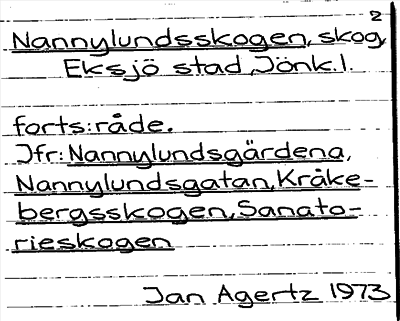 2
Nannylundsskogen, skog,
Eksjö stad, Jönk.l.
forts: råde.
Jfr: Nannylundsgärdena,
Nannylundsgatan, Kråke-
bergsskogen, Sanato-
rieskogen
Jan Agertz 1973